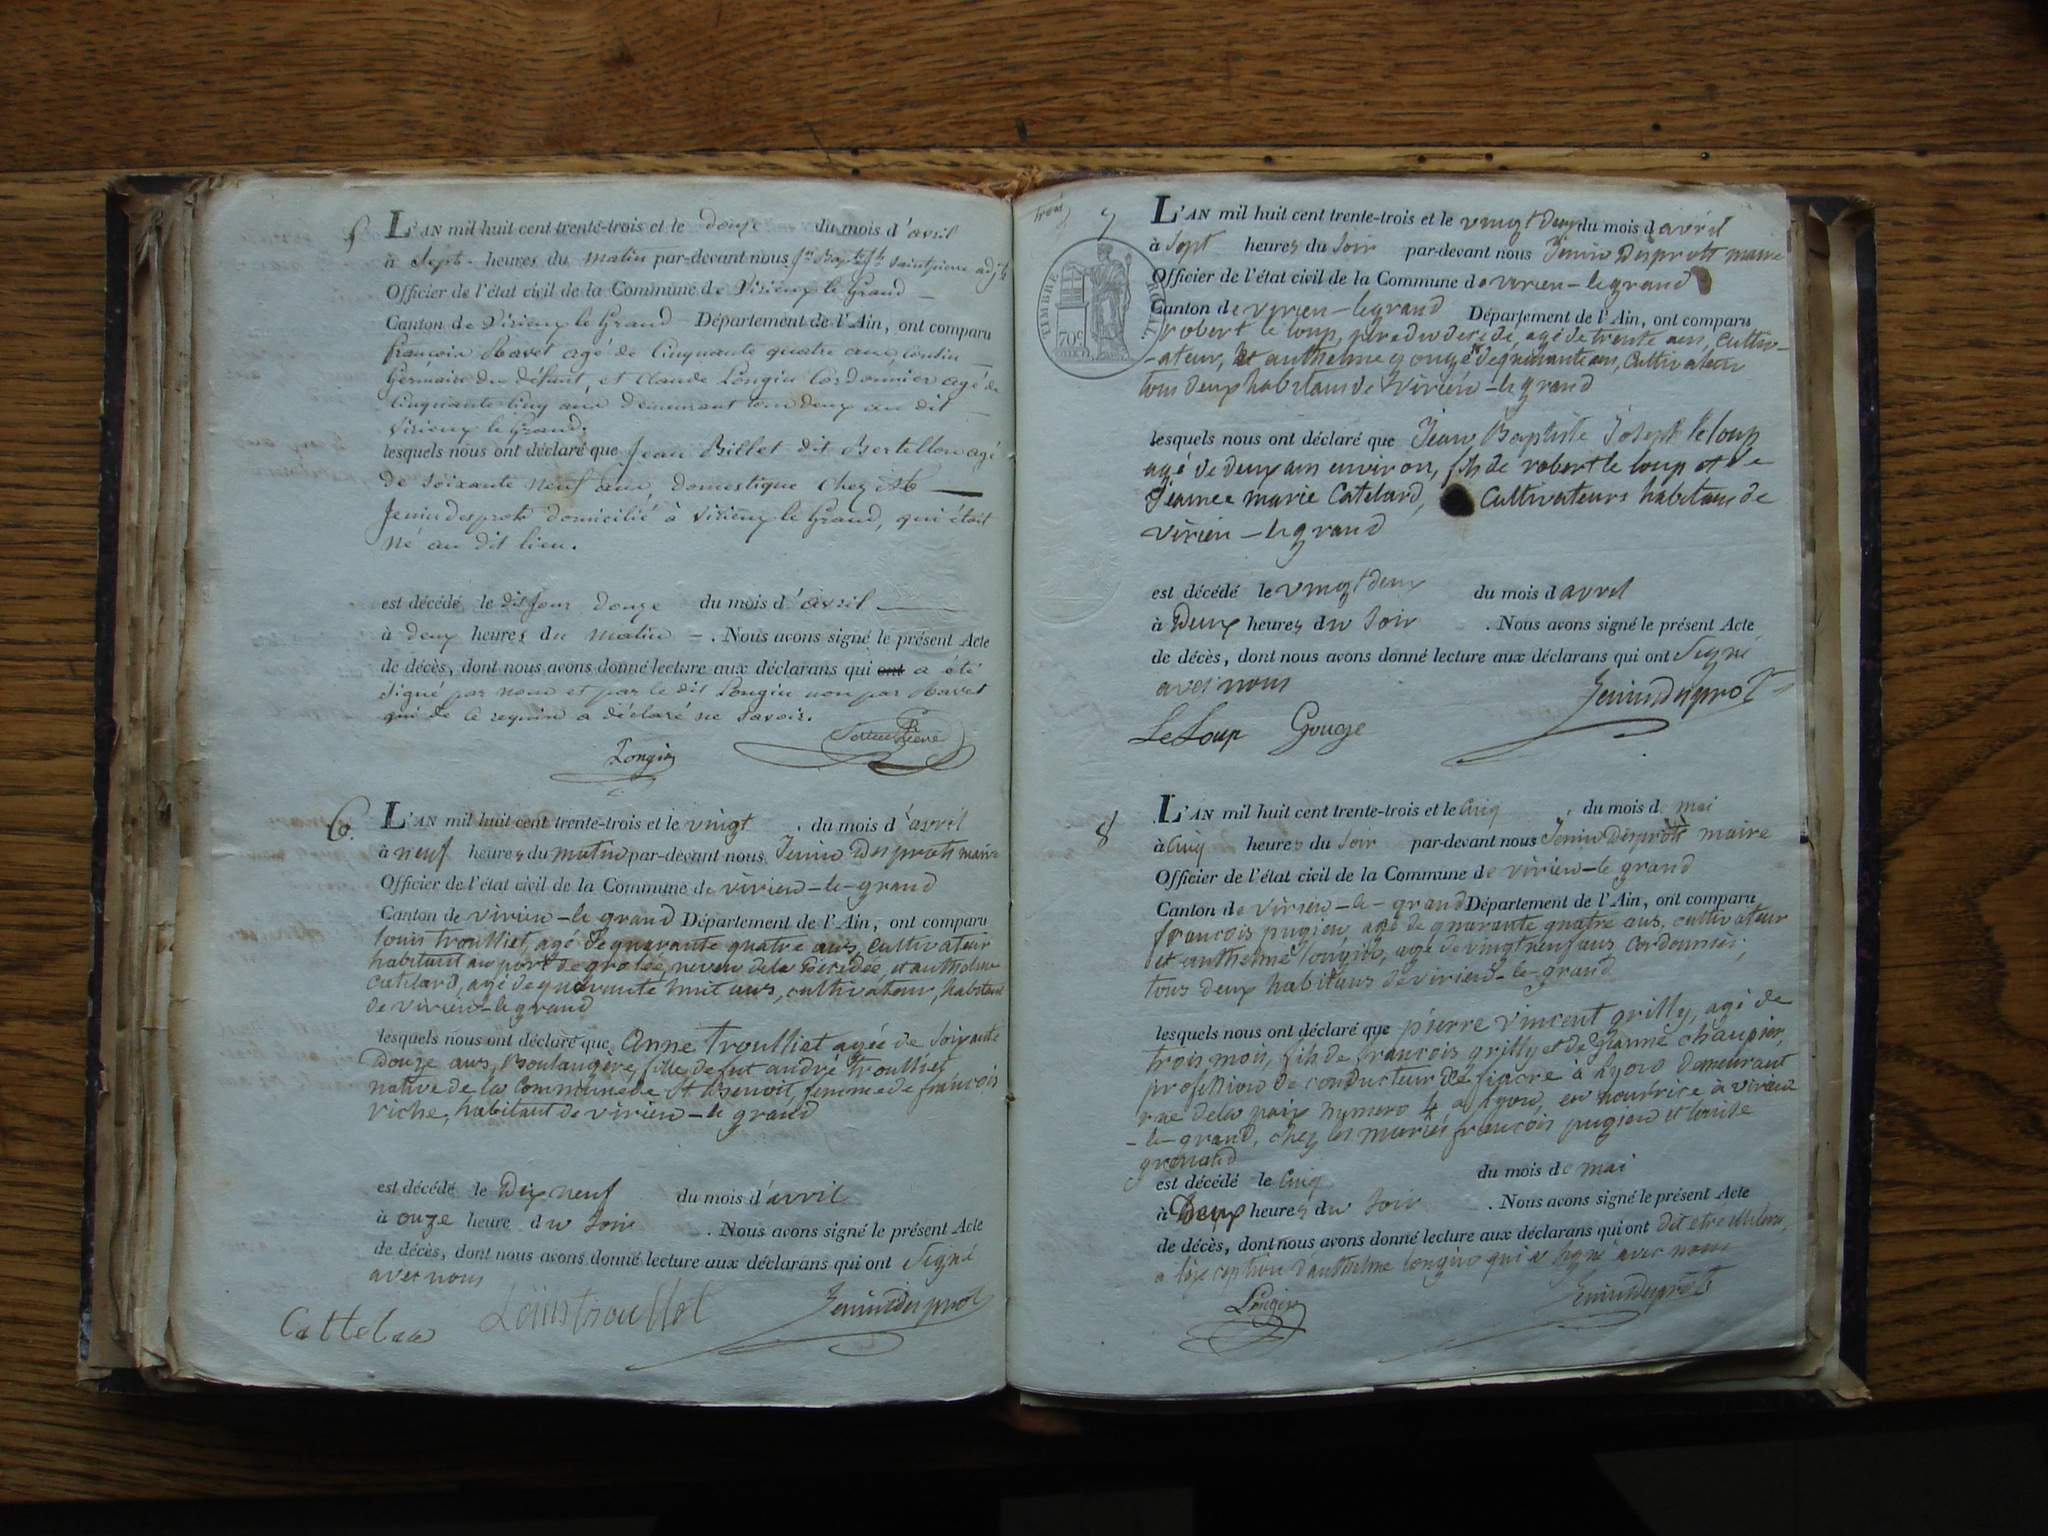 5
L'AN mil huit cent trente-trois et le douze du mois d'avril
à Sept heures du matin par-devant nous Jn Baptiste Saintpierre adjt
Officier de l'état civil de la Commune de Virieux le Grand
Canton de Virieux le Grand Département de l'Ain, ont comparu
françois Ravet agé de Cinquante quatre ans, Cousin
Germain du défunt, et Claude Longin Cordonnier agé de
Cinquante Cinq ans demeurant tous deux au dit
Virieux le Grand.
lesquels nous ont déclaré que Jean Billet dit Bertellon agé
de soixante neuf ans, domestique chez Mr
Jenin desprots domicilié à Virieux le Grand, qui était
né au dit lieu.
est décédé le dit jour douze du mois d'avril
à deux heures du matin . Nous avons signé le présent Acte
de décès, dont nous avons donné lecture aux déclarans qui ont a été
signé par nous et par le dit Longin non par Ravet
qui de ce requis a déclaré ne savoir.
Longin
6.
L'AN mil huit cent trente-trois et le vingt du mois d'avril
à neuf heures du matin par-devant nous Jenin Desprots maire
Officier de l'état civil de la Commune de virieu-le-grand
Canton de virieu-le grand Département de l'Ain, ont comparu
louis troulliet, agé de quarante quatre ans, cultivateur
habitant au port de grolée, neveu de la décédée, et anthelme
catelard, agé de quarante huit ans, cultivateur, habitant
de virieu-le grand
lesquels nous ont déclaré que Anne Troulliet agée de soixante
Douze ans, Boulangère, fille de feut andré troulliet
native de la Commune de St Benoit, femme de françois
viche, habitant de virieu-le grand
est décédé le Dix neuf du mois d'avril
à onze heure du soir . Nous avons signé le présent Acte
de décès, dont nous avons donné lecture aux déclarans qui ont signé
avec nous
Jenindesprot
7
TIMBRE ROYAL
70c
L'AN mil huit cent trente-trois et le vingt deux du mois d avril
à Sept heures du soir par-devant nous Jenin Desprots maire
Officier de l'état civil de la Commune de virieu-le grand
Canton de virieu-le grand Département de l'Ain, ont comparu
robert le loup, père du décédé, agé de trente ans, cultiv-
-ateur, et anthelme gouge de ans, Cultivateur
tous deux habitans de virieu-le grand
lesquels nous ont déclaré que Jean Baptiste Joseph le loup
agé de deux ans environ, fils de robert le loup et de
Jeanne marie Catelard, Cultivateurs habitans de
virieu-le grand
est décédé le vingt deux du mois d avril
à Deux heures du soir . Nous avons signé le présent Acte
de décès, dont nous avons donné lecture aux déclarans qui ont signé
avec nous
Jenindesprot
LeLoup Gouge
8
L'AN mil huit cent trente-trois et le Cinq du mois d mai
à Cinq heures du soir par-devant nous Jenin Desprots maire
Officier de l'état civil de la Commune de virieu-le grand
Canton de virieu-le-grand Département de l'Ain, ont comparu
françois pugieu, agé de quarante quatre ans, cultivateur
et anthelme longin, agé de vingt neuf ans Cordonnier,
tous deux habitans de virieu-le-grand
lesquels nous ont déclaré que pierre vincent grilly, agé de
trois mois, fils de françois grilly et de
profession de conducteur de fiacre à Lyon demeurant
rue de la paix numero 4 a Lyon, en nourrice à virieu
-le-grand, chez les mariés françois pugieu et louise
grenand
est décédé le Cinq du mois de mai
à Deux heures du soir . Nous avons signé le présent Acte
de décès, dont nous avons donné lecture aux déclarans qui ont dit etre illitérés,
a l'exception d'anthelme longin qui a signé avec nous
Longin Jenindesprots